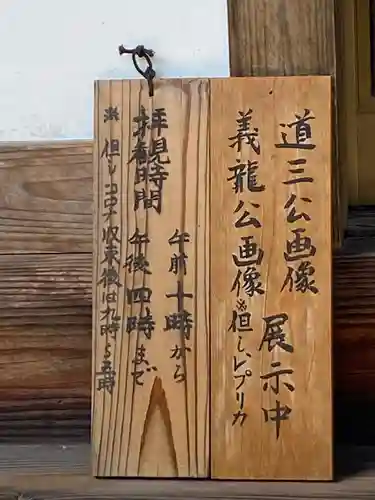 道三公画像
展示中
義龍公画像※但し、レプリカ
拝観時間
午前十時から
午後四時まで
※但しコロナ収束後は九時〜五時